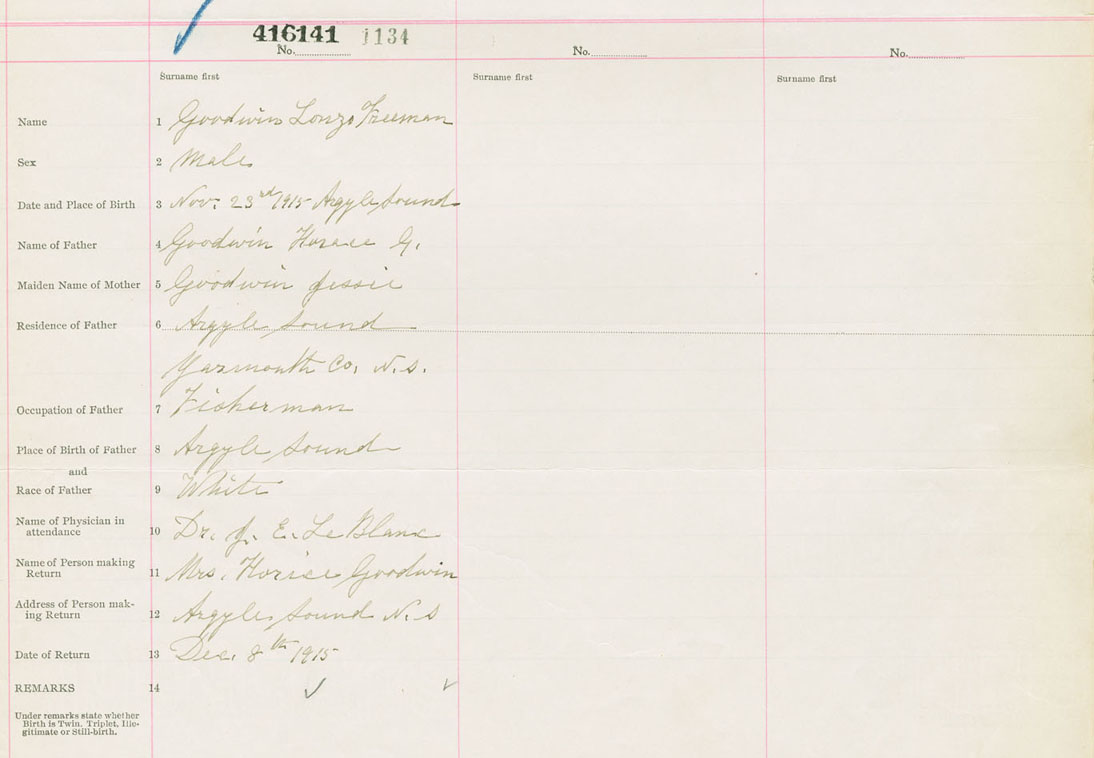 416141 1134
No. No. No.
Surname first Surname first Surname first
Name 1 Goodwin Lonzo Freeman
Sex 2 Male
Date and Place of Birth 3 Nov. 23rd 1915 Argyle Sound
Name of Father 4 Goodwin Horace G.
Maiden Name of Mother 5 Goodwin Jessie
Residence of Father 6 Argyle Sound
Yarmouth Co. N.S.
Occupation of Father 7 Fisherman
Place of Birth of Father 8 Argyle Sound
and
Race of Father 9 White
Name of Physician in
attendance 10 Dr. J. E. Le Blanc
Name of Person making
Return 11 Mrs. Horice Goodwin
Address of Person mak-
ing Return 12 Argyle Sound N.S
Date of Return 13 Dec. 8th 1915
REMARKS 14
Under remarks state whether
Birth is Twin. Triplet, Ille-
gitimate or Still-birth.